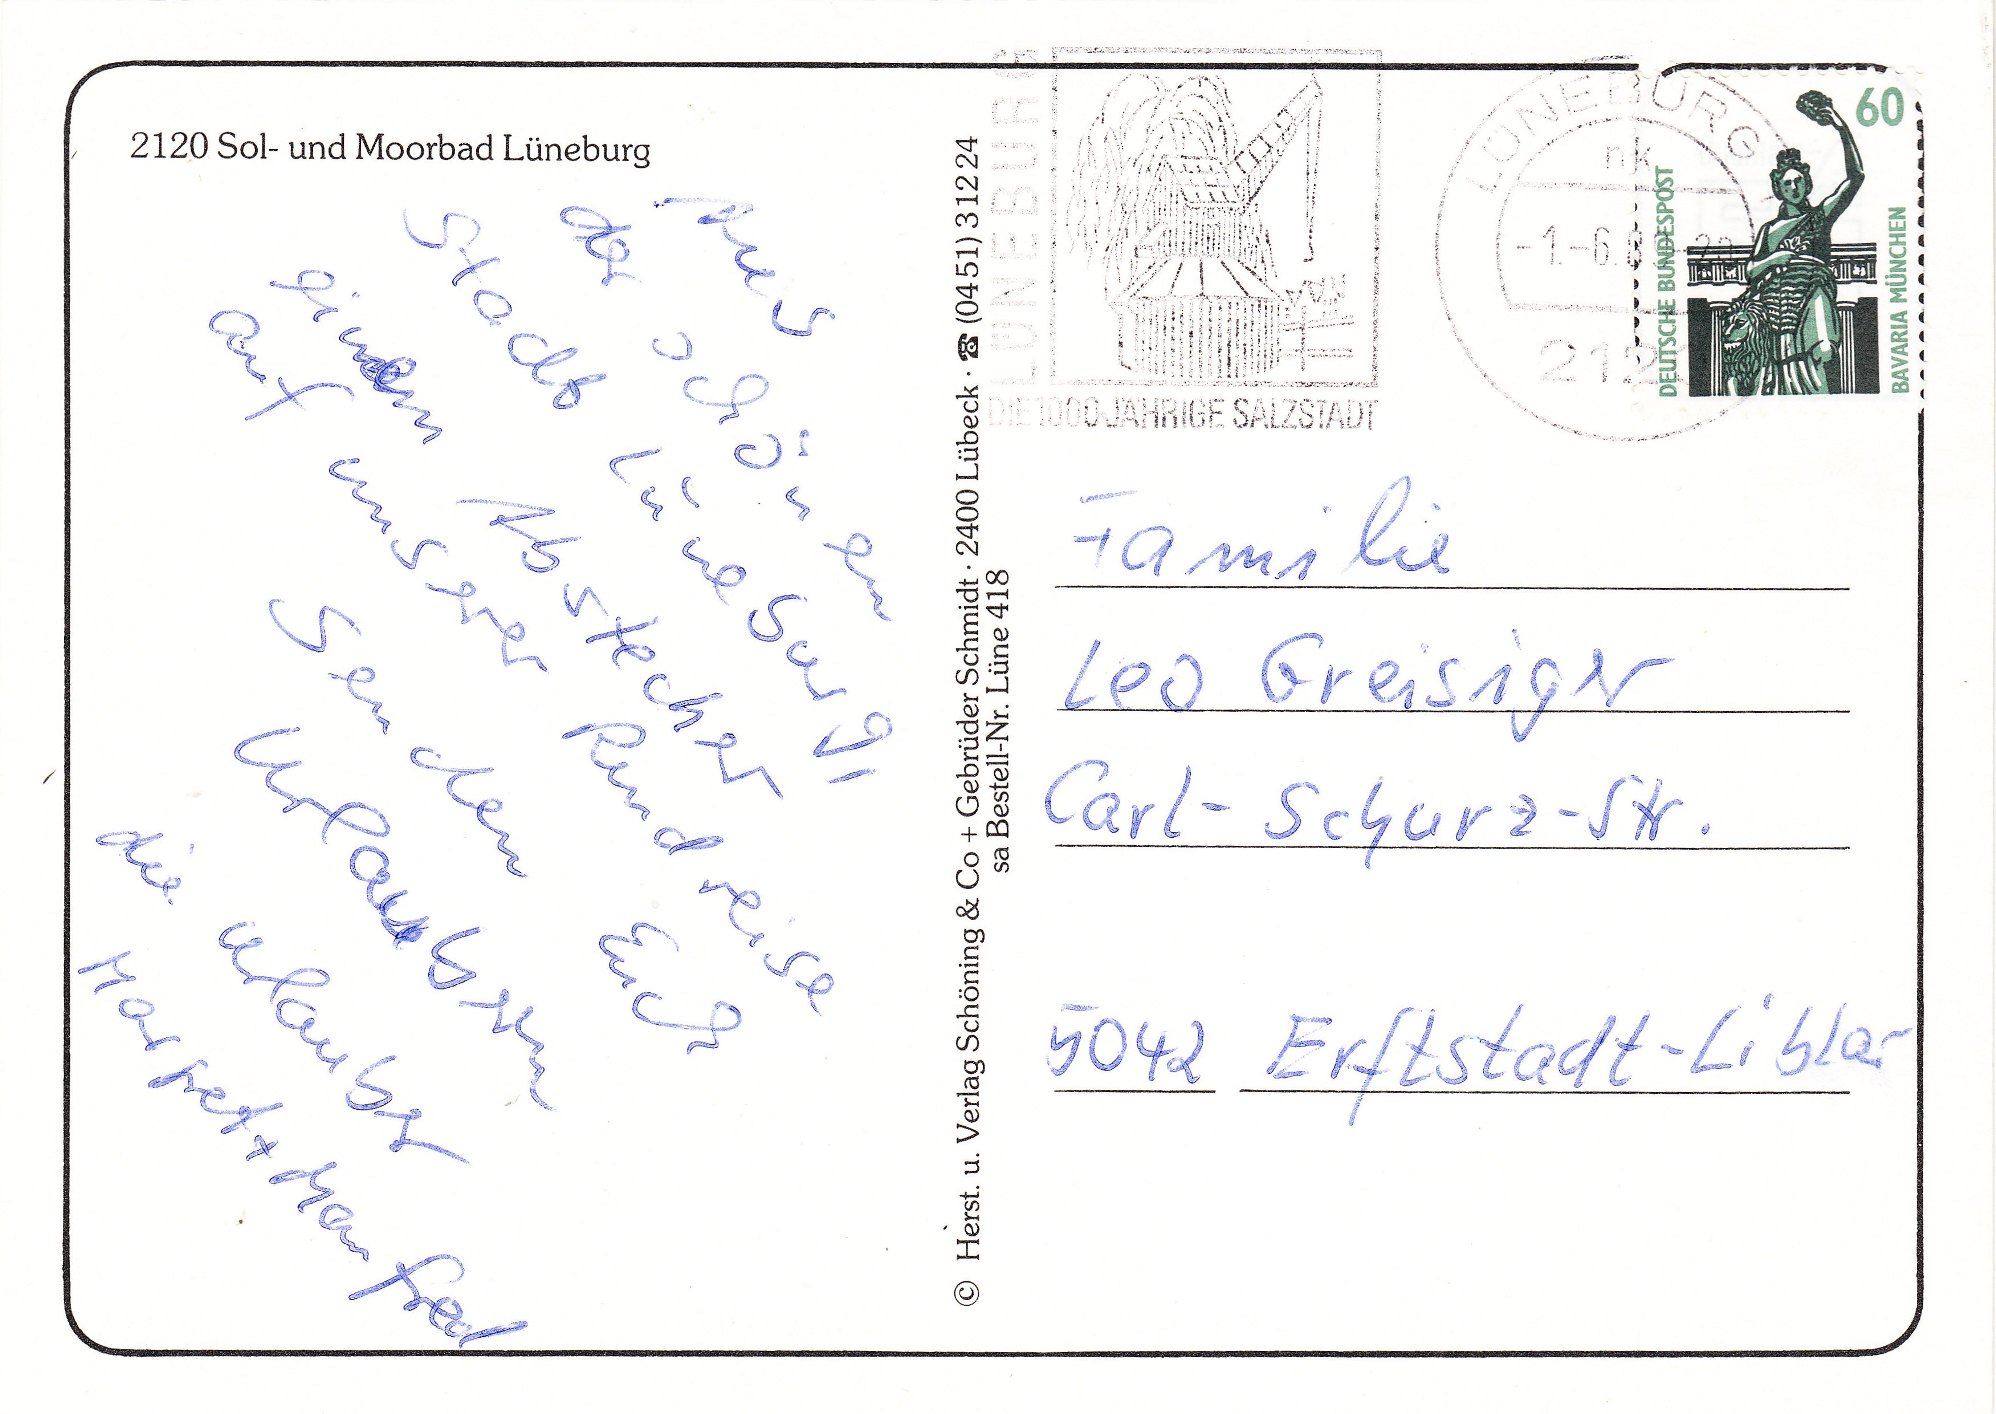 2120 Sol- und Moorbad Lüneburg
Aus
der schönen
Stadt Lüneburg,
einem Abstecher
auf unserer Rundreise
senden Euch
die
Urlauber
Margret + Manfred
© Herst. u. Verlag Schöning & Co + Gebrüder Schmidt · 2400 Lübeck · ☎ (04 51) 3 12 24
sa Bestell-Nr. Lüne 418
LÜNEBURG
DIE 1000 JÄHRIGE SALZSTADT
LÜNEBURG
nk
-1.-6.
212
60
DEUTSCHE BUNDESPOST
BAVARIA MÜNCHEN
Familie
Leo Greisiger
Carl-Schurz-Str.
5042 Erftstadt-Liblar